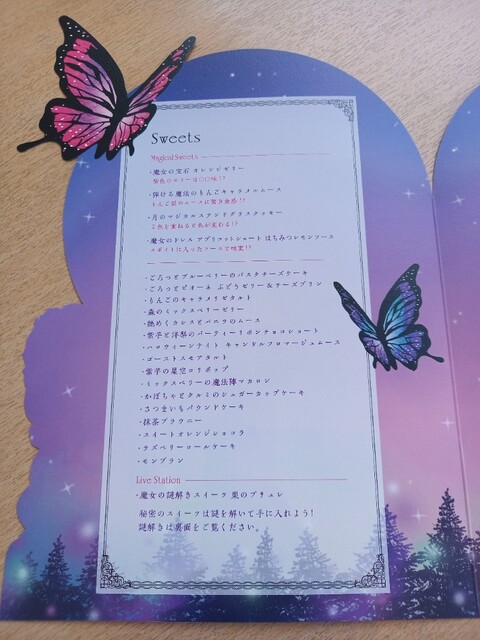 Sweets
Magical Sweets
・魔女の宝石 オレンジゼリー
紫色のゼリーは〇〇味!?
・弾ける魔法のりんごキャラメルムース
りんご型のムースに驚き食感!?
・月のマジカルステンドグラスクッキー
2色を重ねると色が変わる!?
・魔女のドレス アプリコットショート はちみつレモンソース
スポイトに入ったソースで味変!?
・ごろっとブルーベリーのバスクチーズケーキ
・ごろっとピオーネ ぶどうゼリー&チーズプリン
・りんごのキャラメリゼタルト
・森のミックスベリーゼリー
・艶めくカシスとバニラのムース
・紫芋と洋梨のパーティーリボンチョコショート
・ハロウィーンナイト キャンドルフロマージュムース
・ゴーストエセアタルト
・紫芋の星空ロリポップ
・ミックスベリーの魔法陣マカロン
・かぼちゃとクルミのシュガーカップケーキ
・さつまいもパウンドケーキ
・抹茶ブラウニー
・スイートオレンジショコラ
・ラズベリーロールケーキ
・モンブラン
Live Station
・魔女の謎解きスイーツ 栗のブリュレ
秘密のスイーツは謎を解いて手に入れよう!
謎解きは裏面をご覧ください。